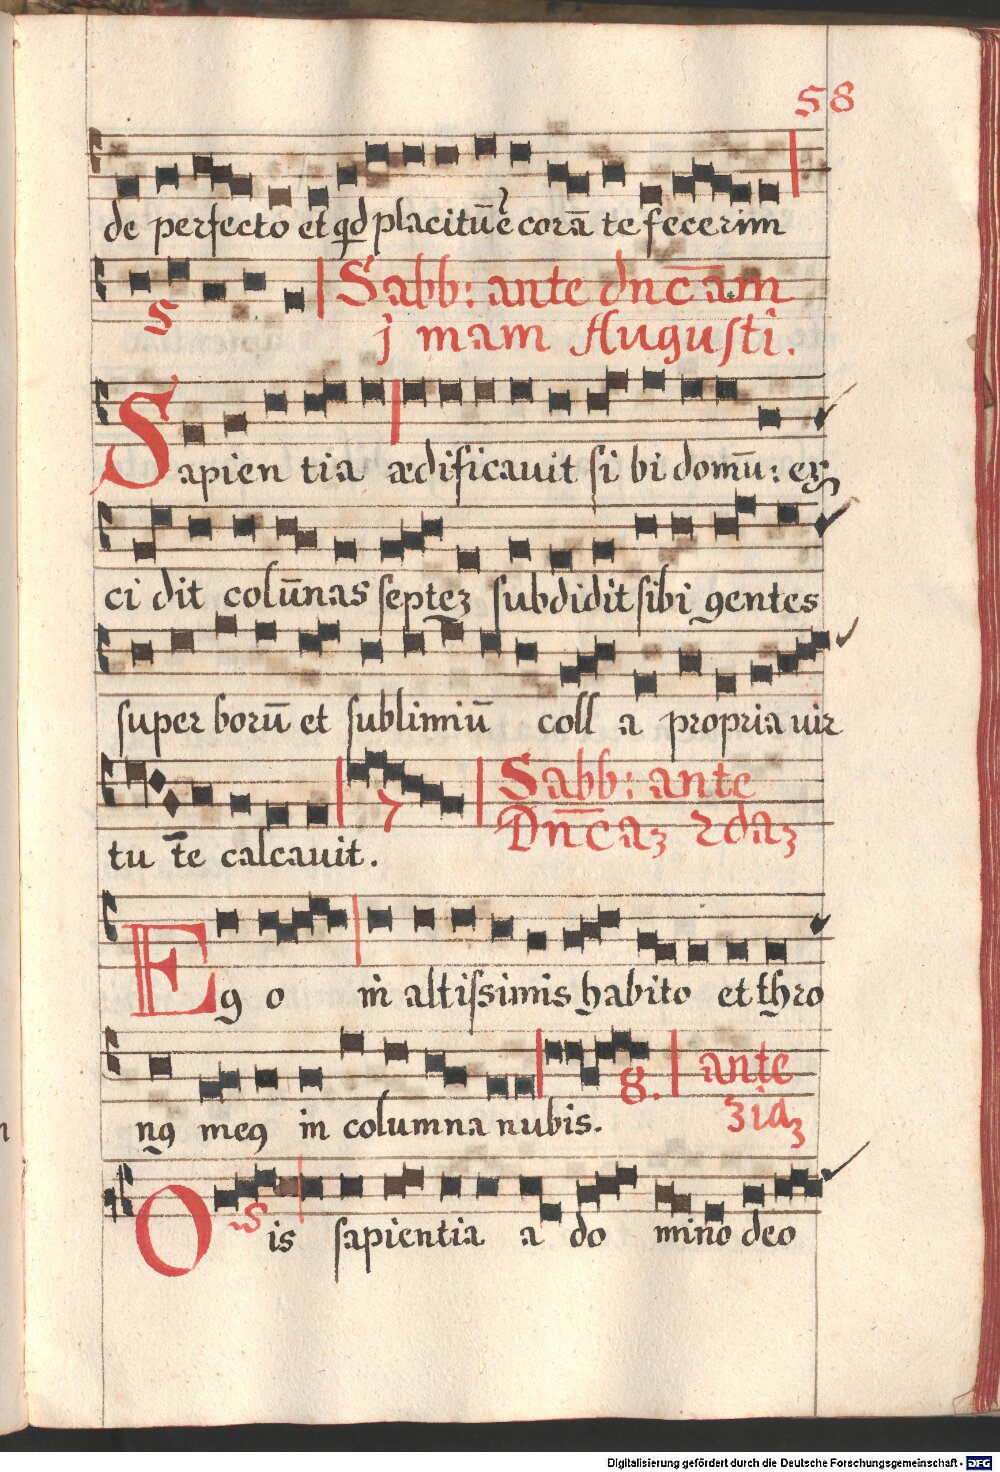 58
de perfecto et qd placitūe corā te fecerim
5 Sabb: ante dnc̄am
j mam Augusti.
Sapien tia ædificauit si bi domū: ex
ci dit colūnas septeʒ subdidit sibi gentes
super borū et sublimiū coll a propria uir
tu te calcauit. 7 Sabb: ante
Dnc̄aʒ 2daʒ
Eg o in altissimis habito et thro
nꝯ meꝯ in columna nubis. 8. ante
3iaʒ
Ois sapientia a do mino deo
Digitalisierung gefördert durch die Deutsche Forschungsgemeinschaft - DFG